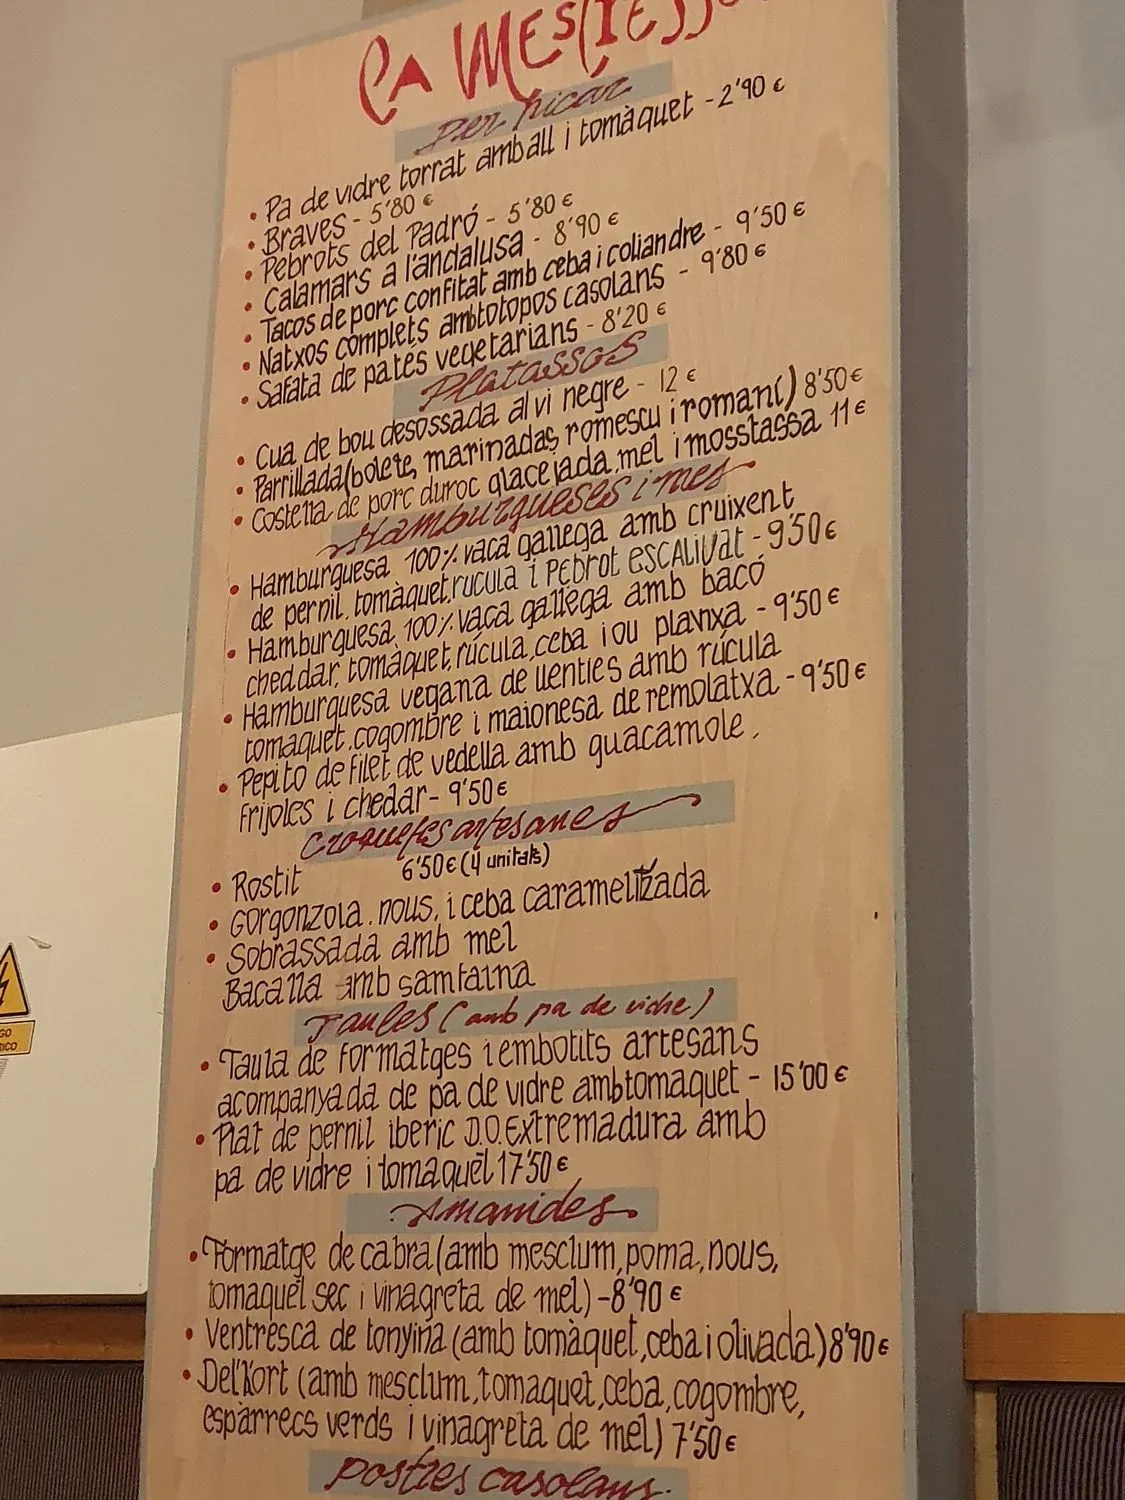 CA MESTRESSA
per picar
• Pa de vidre torrat amb all i tomàquet - 2'90 €
• Braves - 5'80 €
• Pebrots del Padró - 5'80 €
• Calamars a l'andalusa - 8'90 €
• Tacos de porc confitat amb ceba i coliandre - 9'50 €
• Natxos complets amb totopos casolans - 9'80 €
• Safata de patés vegetarians - 8'20 €
Platassos
• Cua de bou desossada al vi negre - 12 €
• Parrillada (bolets, marinadas, romescu i romaní) 8'50 €
• Costella de porc duroc glacejada, mel i mosstassa 11 €
Hamburgueses i mes
• Hamburguesa 100% vaca gallega amb cruixent
de pernil, tomàquet, rucula i PEbrot ESCALIVAT - 9'50 €
• Hamburguesa 100% vaca gallega amb bacó
cheddar, tomàquet, rúcula, ceba i ou planxa - 9'50 €
• Hamburguesa vegana de llenties amb rúcula
tomaquet, cogombre i maionesa de remolatxa - 9'50 €
• Pepito de filet de vedella amb guacamole,
frijoles i chedar - 9'50 €
Croquetes artesanes
6'50 € (4 unitats)
• Rostit
• Gorgonzola, nous, i ceba caramelitzada
• Sobrassada amb mel
Bacallà amb samfaina
Taules (amb pa de vidre)
• Taula de formatges i embotits artesans
acompanyada de pa de vidre amb tomaquet - 15'00 €
• Plat de pernil iberic D.O. Extremadura amb
pa de vidre i tomaquet 17'50 €
Amanides
• Formatge de cabra (amb mesclum, poma, nous,
tomaquet sec i vinagreta de mel) - 8'90 €
• Ventresca de tonyina (amb tomàquet, ceba i olivada) 8'90 €
• Del'hort (amb mesclum, tomaquet, ceba, cogombre,
espàrrecs verds i vinagreta de mel) 7'50 €
Postres casolans